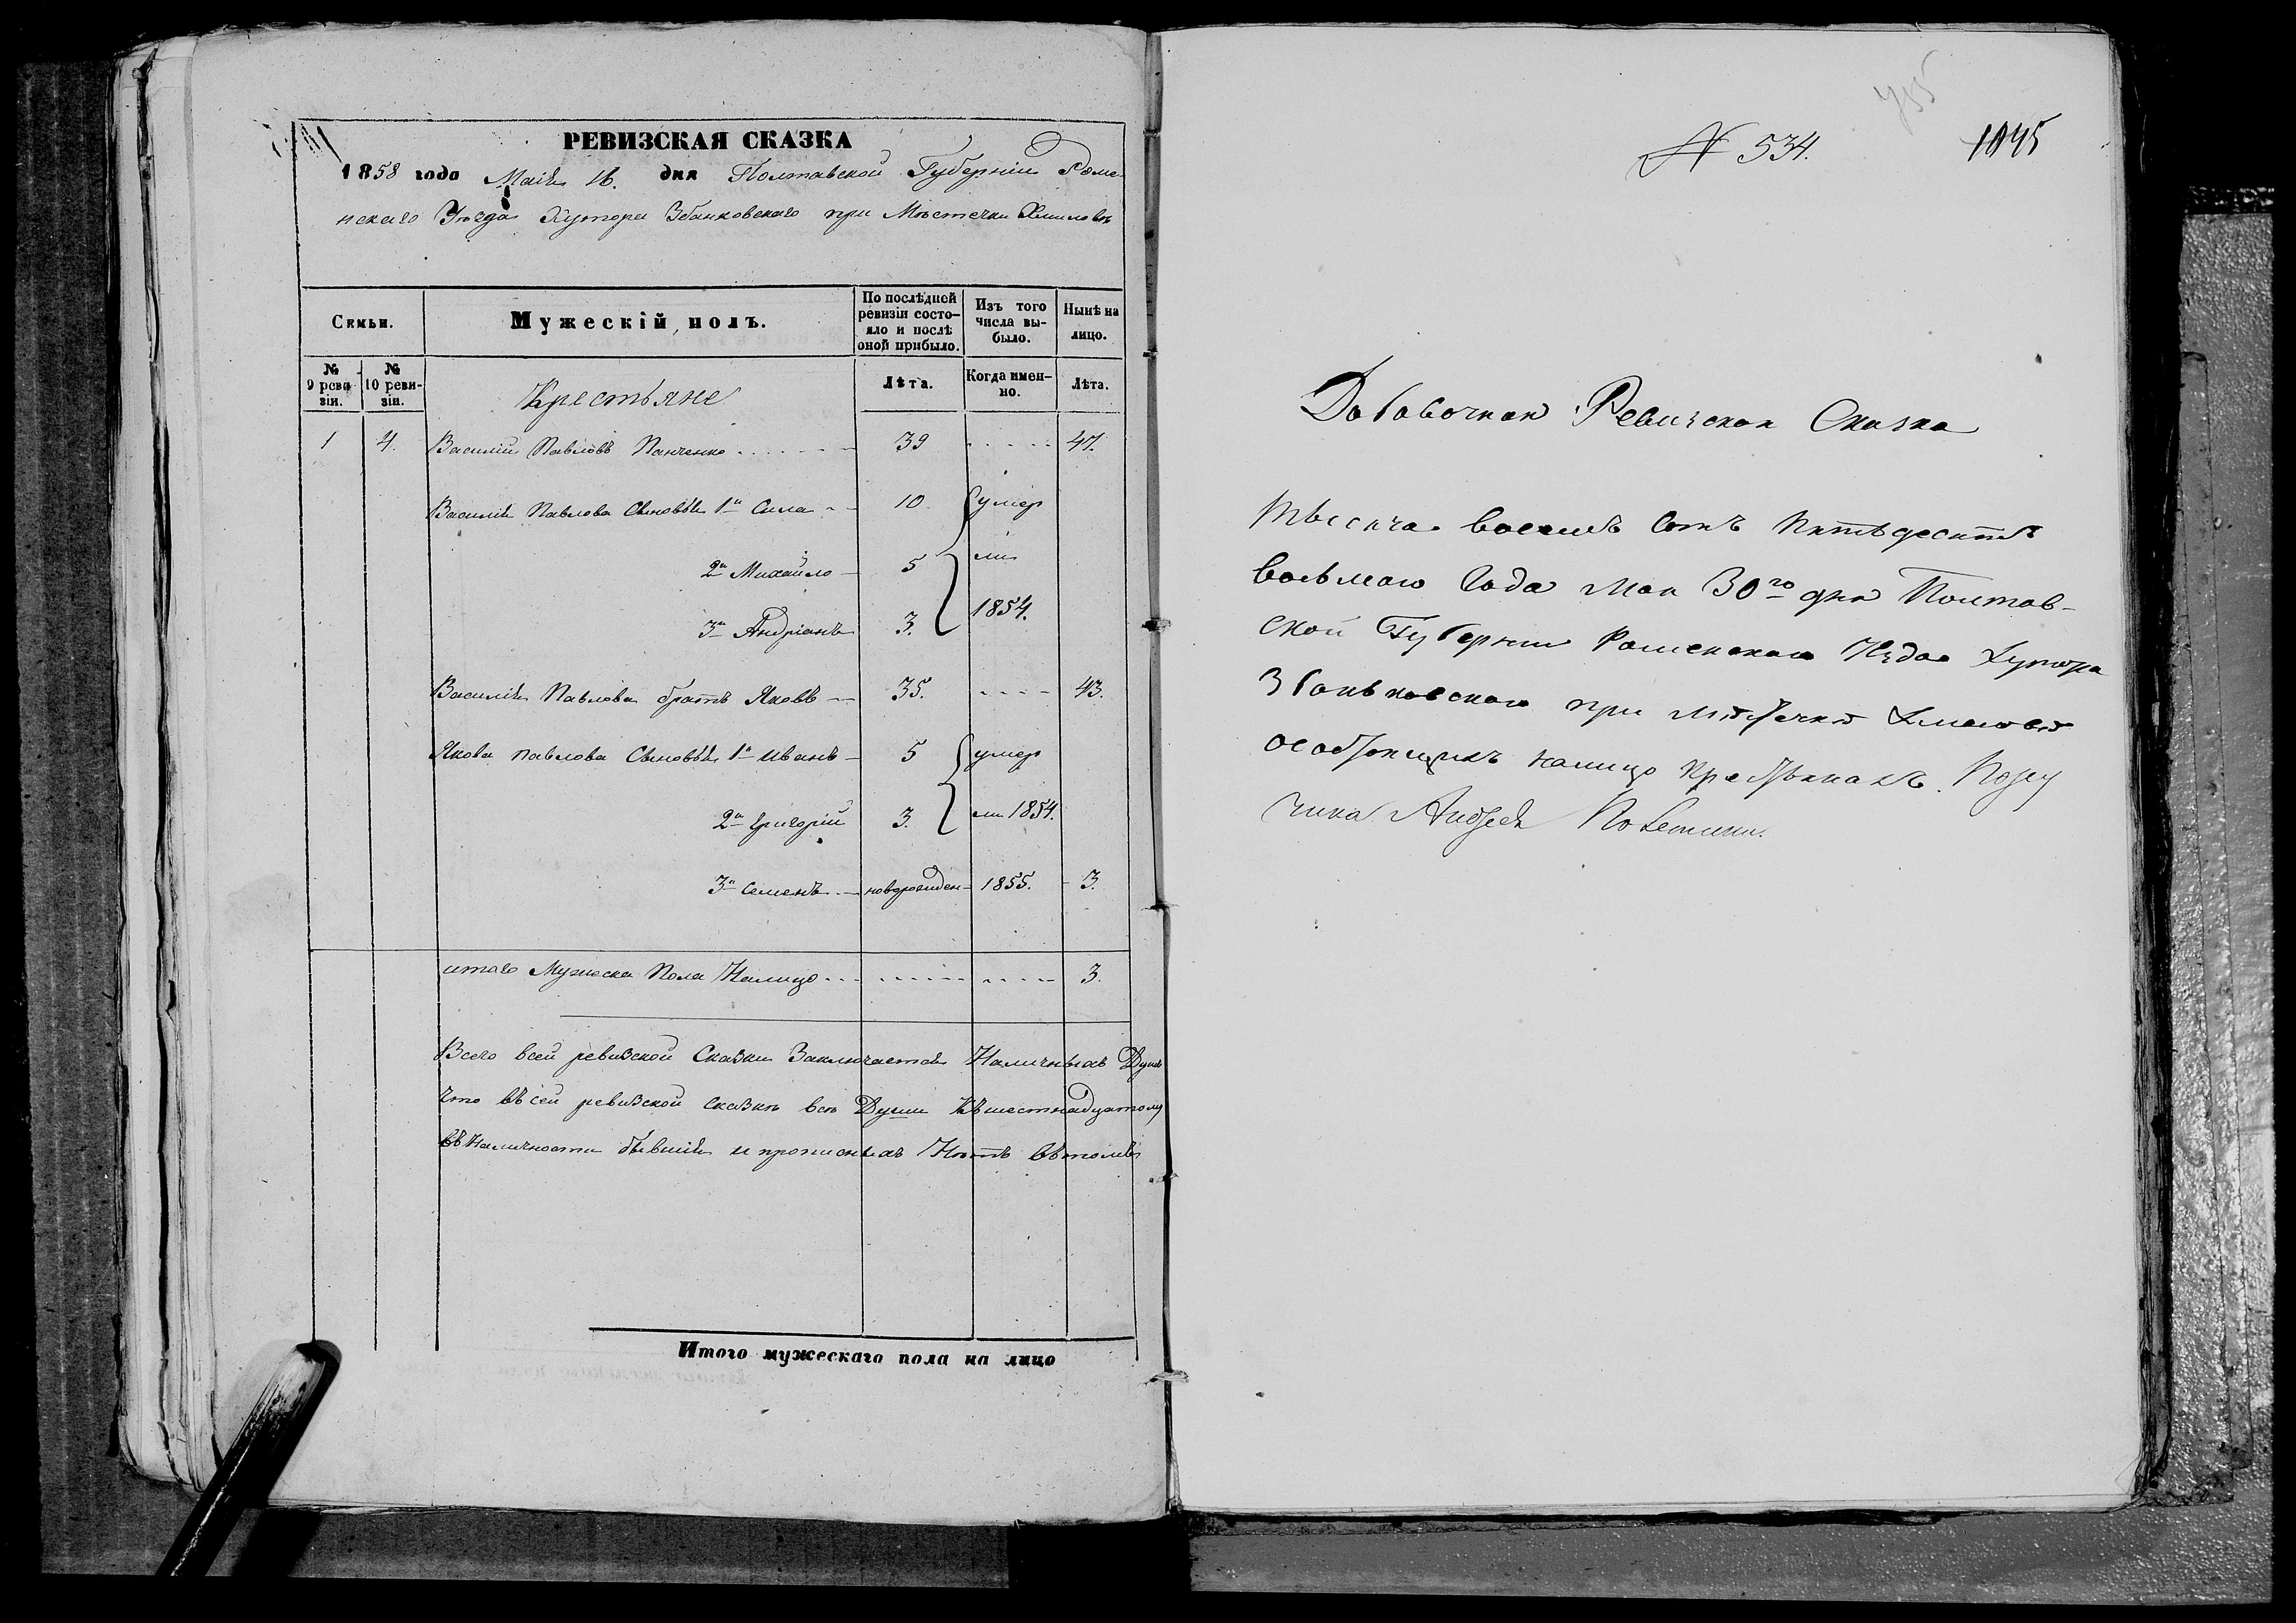 РЕВИЗСКАЯ СКАЗКА
1858 года Маія 16. дня Полтавской Губерніи Роме
нскаго Уѣзда Хутора Збанковскаго при Мѣстечки Хмиловѣ
Семьи.
Мужескій полъ.
По послѣдней ревизіи состо-
яло и послѣ
оной прибыло.
Изъ того
числа вы-
было.
Нынѣ на
лицо.
№
9 реви
зіи.
№
10 реви-
зіи.
Крестьяне
Лѣта.
Когда имен-
но.
Лѣта.
1 4. Василій Павловъ Панченко 39 47.
Василія Павлова Сыновья 1й Сила 10 умер
2й Михайло 5 ли
3й Андріанъ 3. 1854.
Василія Павлова братъ Яковъ 35. 43.
Якова павлова Сыновья 1й иванъ 5 умер
2й григорій 3. ли 1854.
3й Семенъ новорожден 1855. 3.
итого Мужеска Пола Налицо 3.
Всего всей ревизской Сказки Заключается Наличныхъ Душъ
что въ сей ревизской сказки всѣ Души Къ шестнадцатому
въ Наличности бывшія и прописныхъ Нѣтъ вътомъ
Итого мужескаго пола на лицо
755
№ 534.
1045
Добавочная Ревизская Сказка
Тысяча восемь Сотъ Пятьдесятъ
восьмого Года мая 30го дня Полтав-
ской Губернии Роменского Уѣзда Хутора
Збаньковского при мѣстечкѣ Хмеловѣ
о состоящихъ налицо крестьянахъ. Пору
чика Андрея